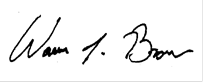 Warren L. Brown